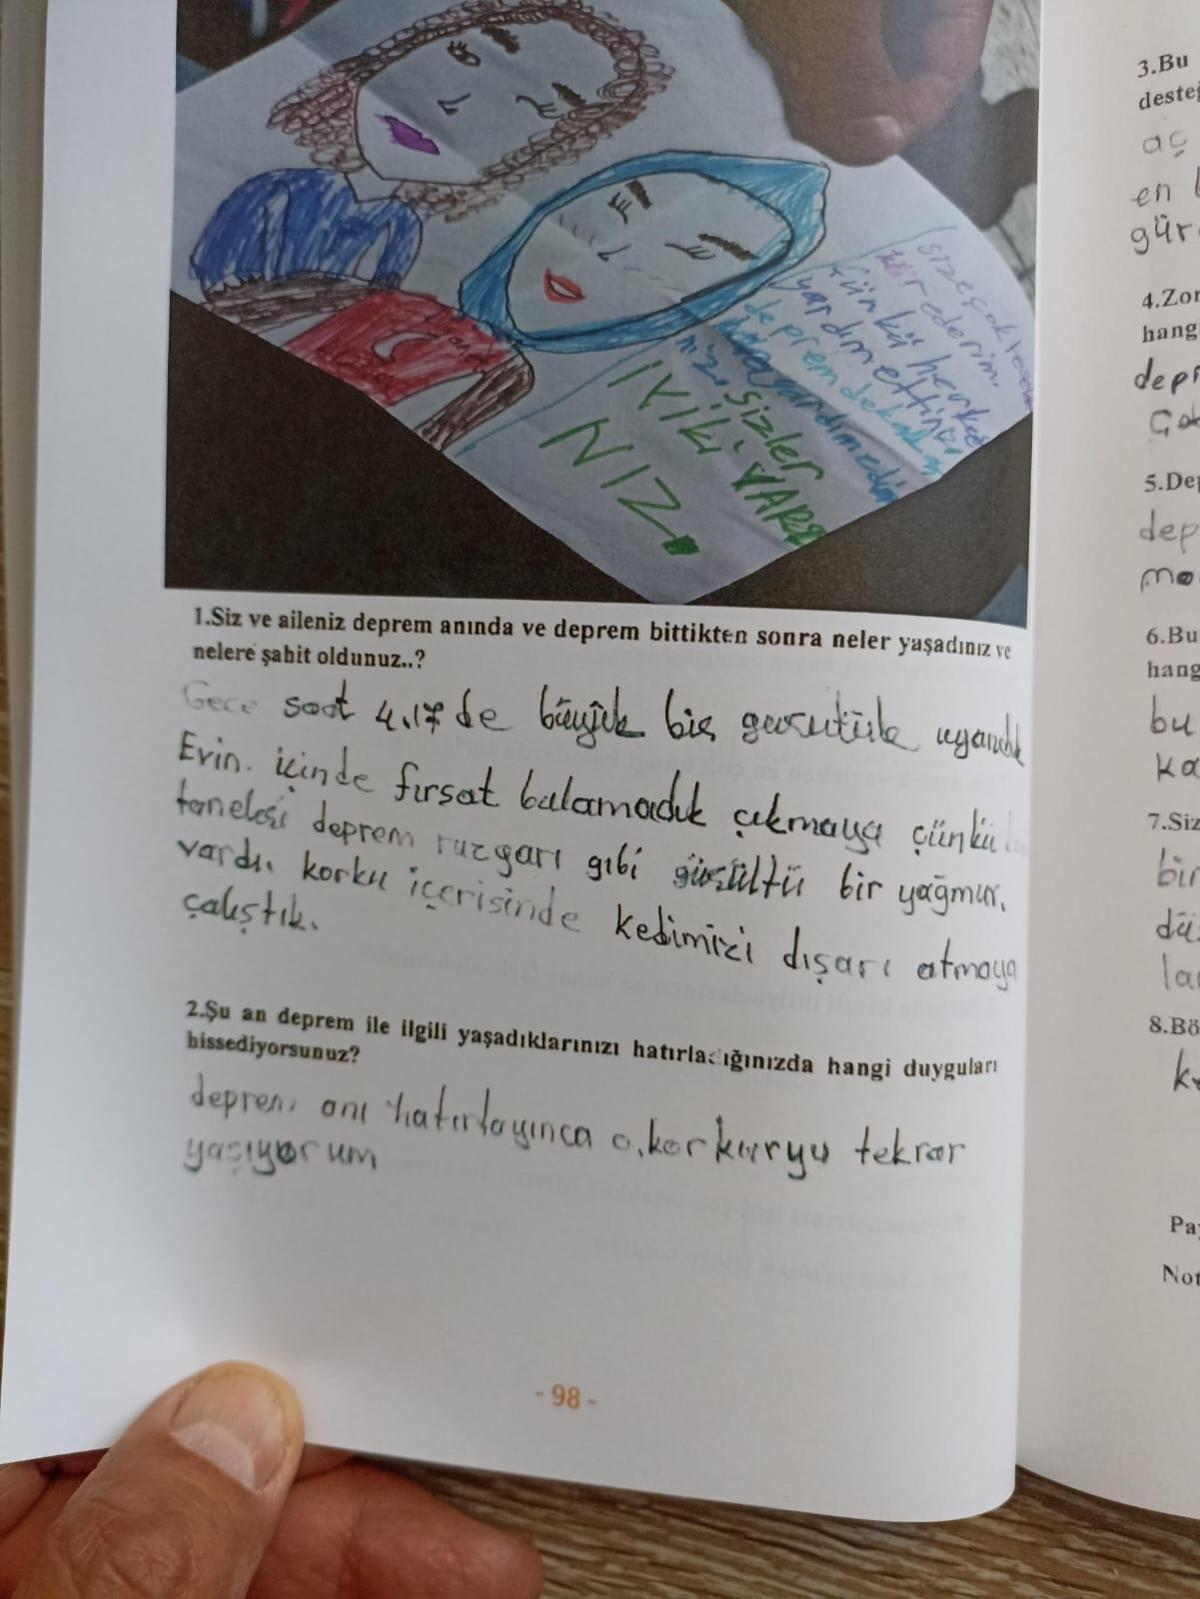 size çok teşek
kür ederim.
çünkü herkese
yardım ettiniz
depremdekaları
yardımedin
niz. sizler
İYİKİ VARS
NIZ
1.Siz ve aileniz deprem anında ve deprem bittikten sonra neler yaşadınız ve
nelere şahit oldunuz..?
Gece saat 4.17 de büyük bir gurutüle uyandık
Evin. içinde fırsat bulamadık çıkmaya çünkü
taneleri deprem ruzgarı gibi gürültü bir yağmur.
vardı. korku içerisinde kedimizi dışarı atmaya
çalıştık.
2.Şu an deprem ile ilgili yaşadıklarınızı hatırladığınızda hangi duyguları
hissediyorsunuz?
deprem anı hatırlayınca o.korkuryu tekrar
yaşıyorum
- 98 -
3.Bu
desteğ
aç
en
gür
4.Zor
hang
depr
Çok
5.Dep
dep
mo
6.Bu
hang
bu
ka
7.Siz
bir
dü
la
8.Bö
k
Pay
Not